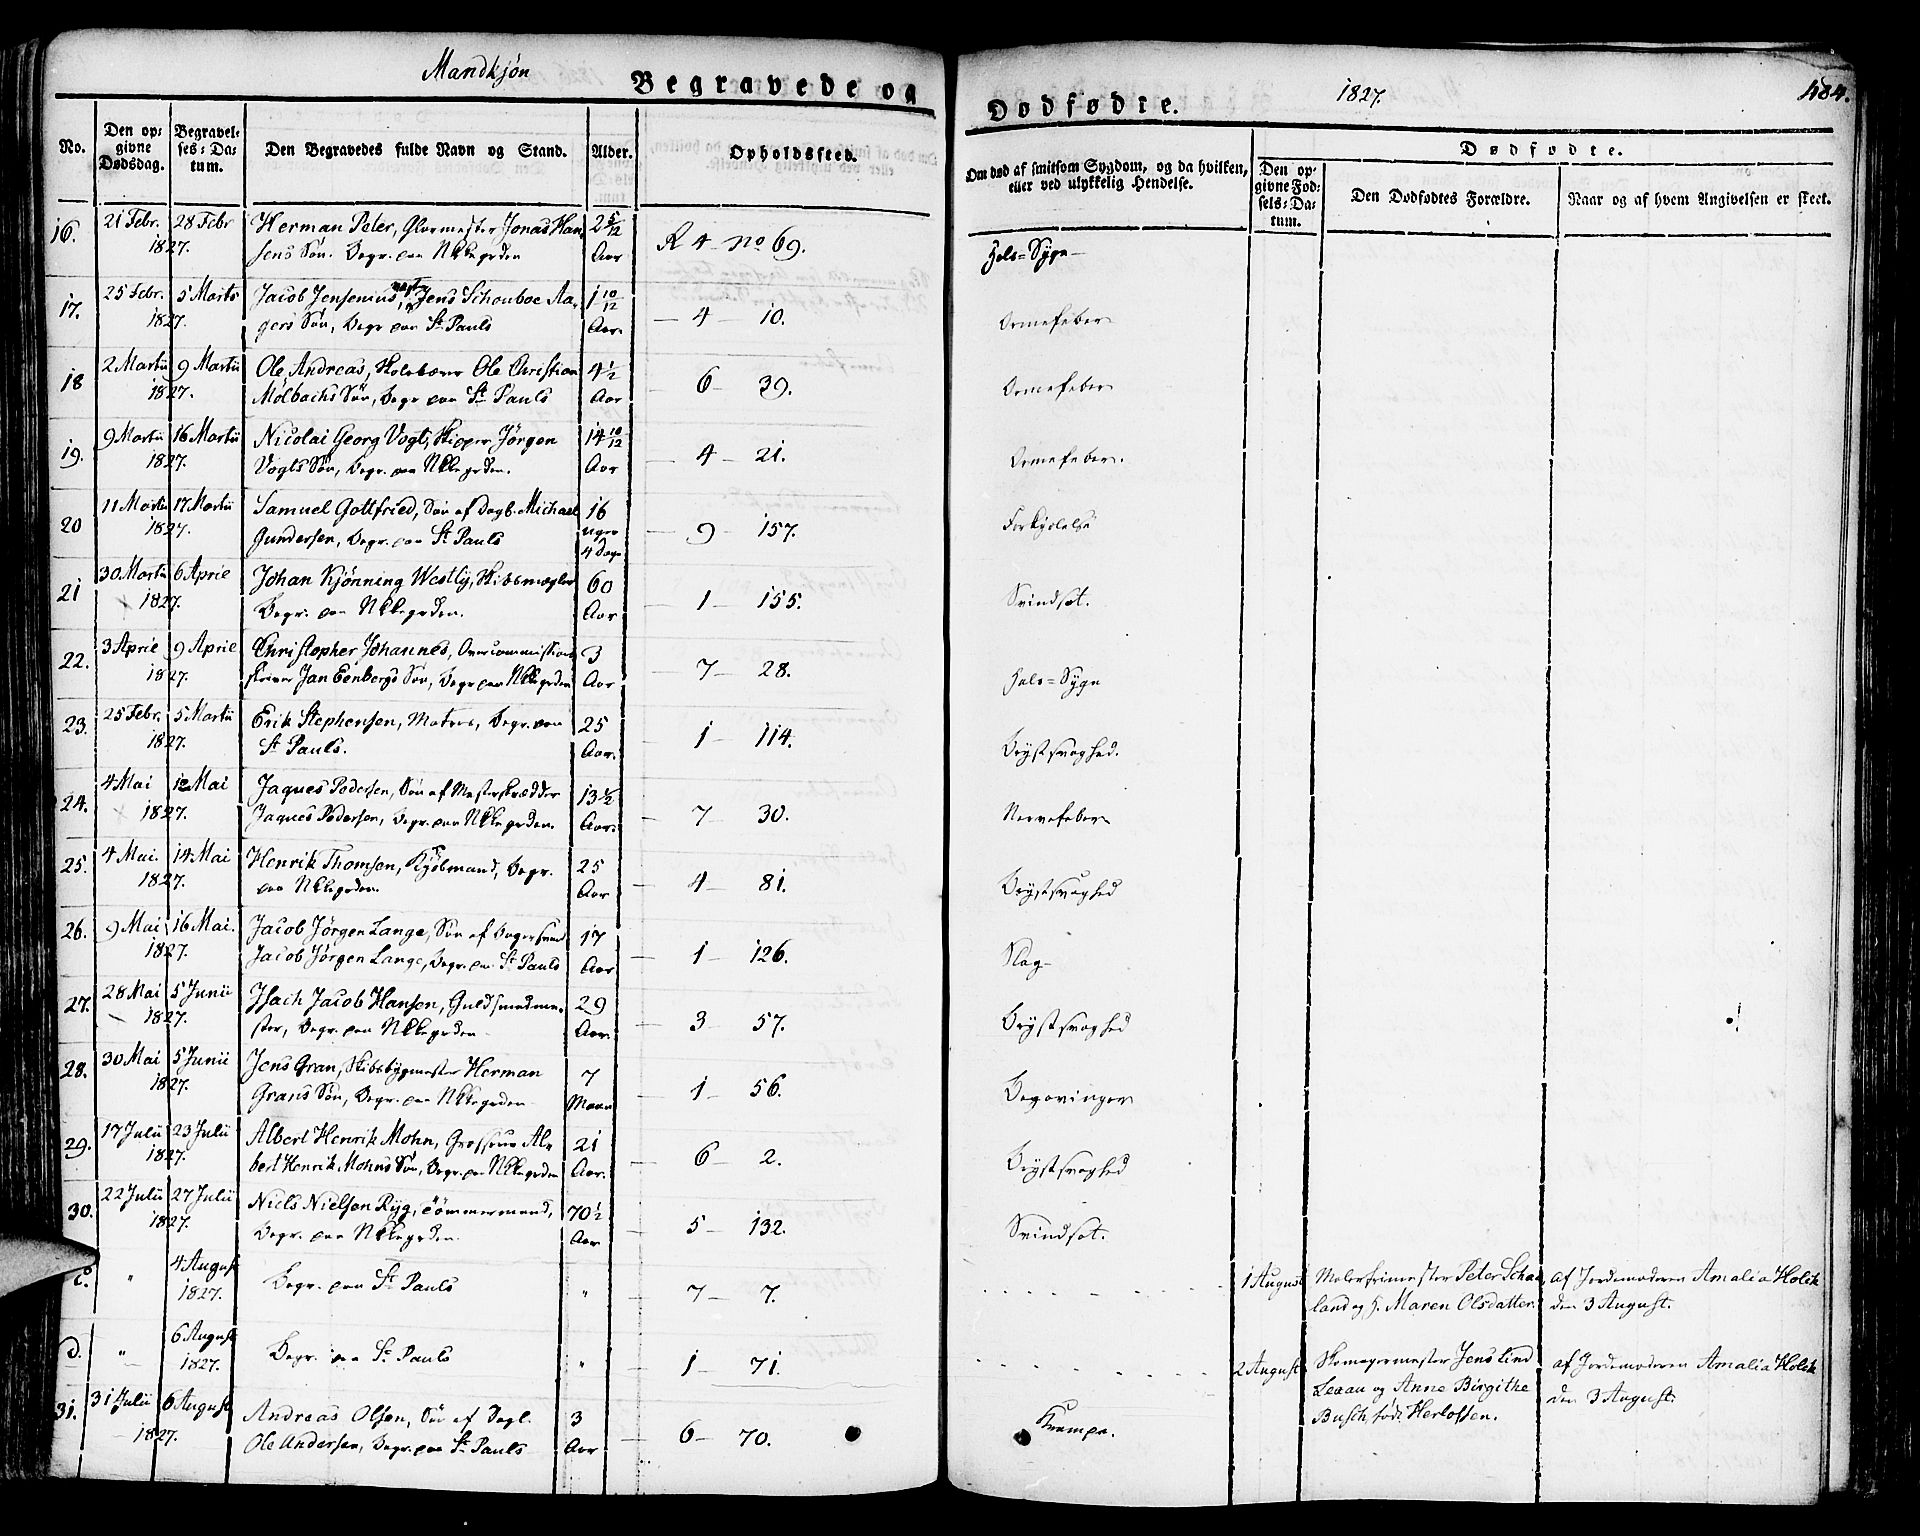 Mandkjøn
Begravede og
Dødfødte.
1827.
484.
No.
Den opgivne Dødsdag.
Begravelses-Datum.
Den Begravedes fulde Navn og Stand.
Alder.
Opholdssted.
Om død af smitsom Sygdom, og da hvilken, eller ved ulykkelig Hendelse.
Dødfødte.
Den opgivne Fødsels-Datum.
Den Dødfødtes Forældre.
Naar og af hvem Angivelsen er skeet.
16. 21 Febr. 28 Febr Herman Peter, Glarmester Jonas Han- 2 5/12
1827. sens Søn. Begr. paa Nkkegrden Aar R 4 no 69. Hals-Syge
17. 25 Febr. 5 Marts Jacob Jensenius, Jens Schouboe Aa- 1 10/12
1827. gers Søn, Begr paa St Pauls Aar. — 4 — 10. Ormefeber
18 2 Martii 9 Martii Ole Andreas, Ole Christian 4 1/2
1827. Mølbachs Søn, Begr paa St Pauls Aar — 6 — 39. Ormefeber
19. 9 Martii 16 Martii Nicolai Georg Vogt, Skipper Jørgen 14 10/12
1827. Vogts Søn, Begr. paa Nkkegrden. Aar — 4 — 21. Ormefeber.
20 11 Martii 17 Martii Samuel Gottfried, Søn af Dagl. Michael 16
1827. Gundersen, Begr. paa St Pauls uger 4 Dage — 9 — 157. Forkjølelse
21 30 Martii 6 Aprie Johan Kjønning Westly, Skibsmægler 60
1827. Begr. paa Nkkegrden. Aar — 1 — 155. Svindsot.
22. 3 Aprie 9 Aprie Christopher Johannes, Overcommissions 3
1827. skriver Jan Eenbergs Søn, Begr paa Nkkegrden Aar — 7 — 28. Hals-Syge
23. 25 Febr. 5 Martii Erik Stephensen, Matros, Begr. paa 25
1827. St Pauls. Aar. — 1 — 114. Brystsvaghed.
24. 4 Mai 12 Mai Jaques Pedersen, Søn af Mesterskrædder 13 1/2
1827. Jaques Pedersen, Begr. paa Nkkegrden. Aar. — 7 — 30. Nervefeber
25. 4 Mai. 14 Mai Henrik Thomsen, Kjøbmand, Begr. 25
1827. paa Nkkegrden. Aar — 4 — 81. Brystsvaghed
26. 9 Mai 16 Mai. Jacob Jørgen Lange, Søn af Bagersvend 17
1827. Jacob Jørgen Lange, Begr. paa St Pauls Aar — 1 — 126. Slag
27. 28 Mai 5 Junii Isach Jacob Hansen, Guldsmedme- 29
1827. ster, Begr. paa Nkkegrden Aar. — 3 — 57. Brystsvaghed
28. 30 Mai 5 Junii Jens Gran, Skibsbygmester Herman 7
1827. Grans Søn, Begr. paa Nkkegrden Maan — 1 — 56. Begavinger
29. 17 Julii 23 Julii Albert Henrik Mohn, Grosseur Al- 21
1827. bert Henrik Mohns Søn, Begr. paa Nkkegrden Aar. — 6 — 2. Brystsvaghed
30. 22 Julii 27 Julii Niels Nielsen Ryg, Tømmermand, 70 1/2
1827. Begr. paa Nkkegrden. Aar — 5 — 132. Svindsot.
c. " 4 August Begr. paa St Pauls " 1 August Malerfrimester Peter Scha- af Jordemoderen Amalia Holck
1827. — 7 — 7. land og H. Maren Olsdatter. den 3 August.
d. " 6 August Begr. paa St Pauls " 2 August Skomagermester Jens Lind af Jordemoderen Amalia Holck
1827. — 1 — 71. Leaau og Anne Birgithe den 3 August.
Busch, født Herlossen.
31. 31 Julii 6 August Andreas Olsen, Søn af Dagl. 3
1827. Ole Andersen, Begr. paa St Pauls Aar — 6 — 70. Krampe.